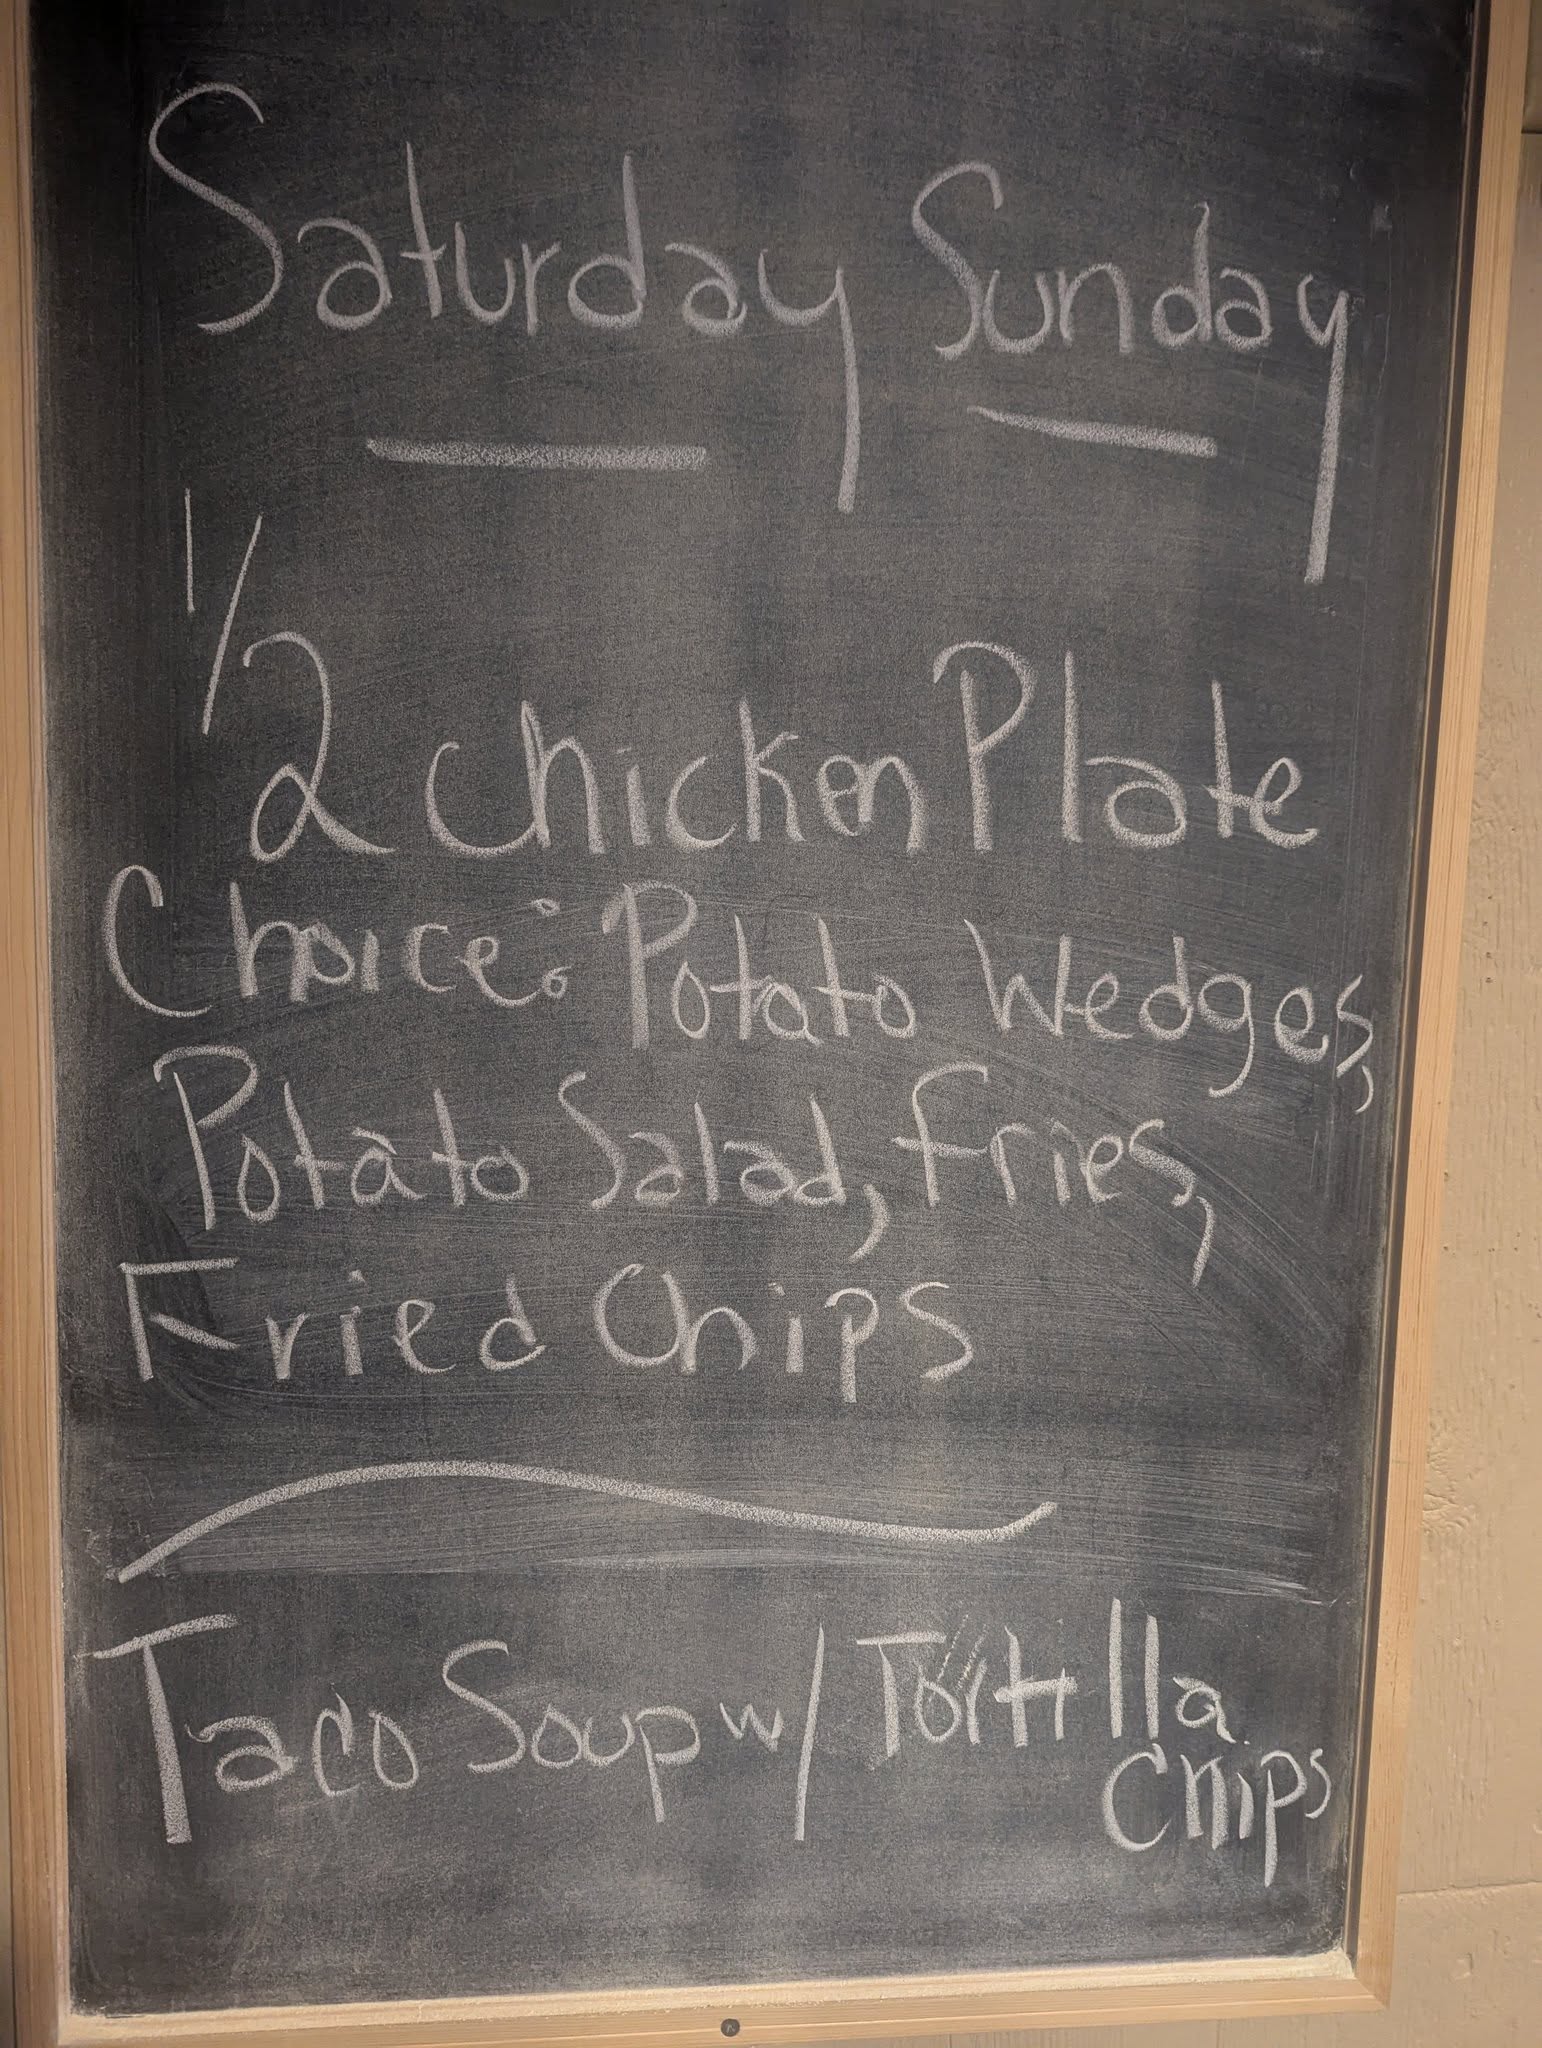 Saturday Sunday
1/2 Chicken Plate
Choice: Potato Wedges,
Potato Salad, Fries,
Fried Chips
Taco Soup w/ Tortilla
Chips